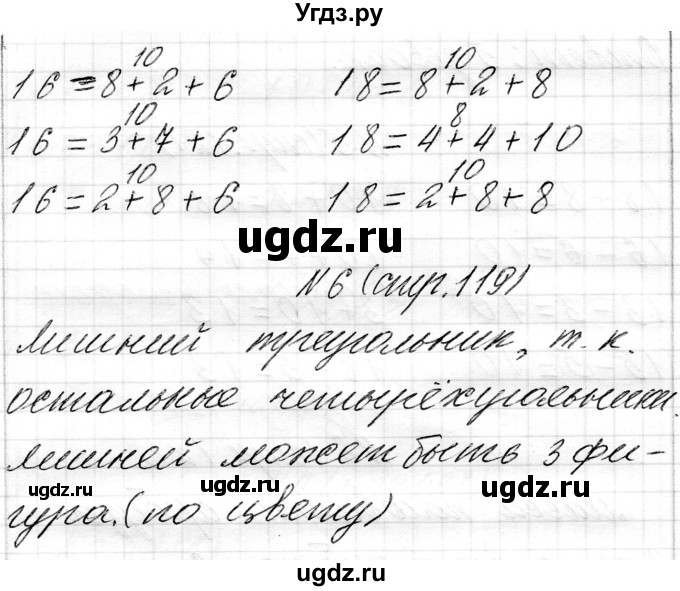 Угдз.ру
10 10
16 = 8 + 2 + 6 18 = 8 + 2 + 8
10 8
16 = 3 + 7 + 6 18 = 4 + 4 + 10
10 10
16 = 2 + 8 + 6 18 = 2 + 8 + 8
ugdz.ru
N6 (стр. 119)
лишний треугольник, т. к.
остальные четырёхугольники.
лишней может быть 3 фи-
ugdz.ru ugdz.ru ugdz.ru
гура. (по цвету)
ugdz.ru